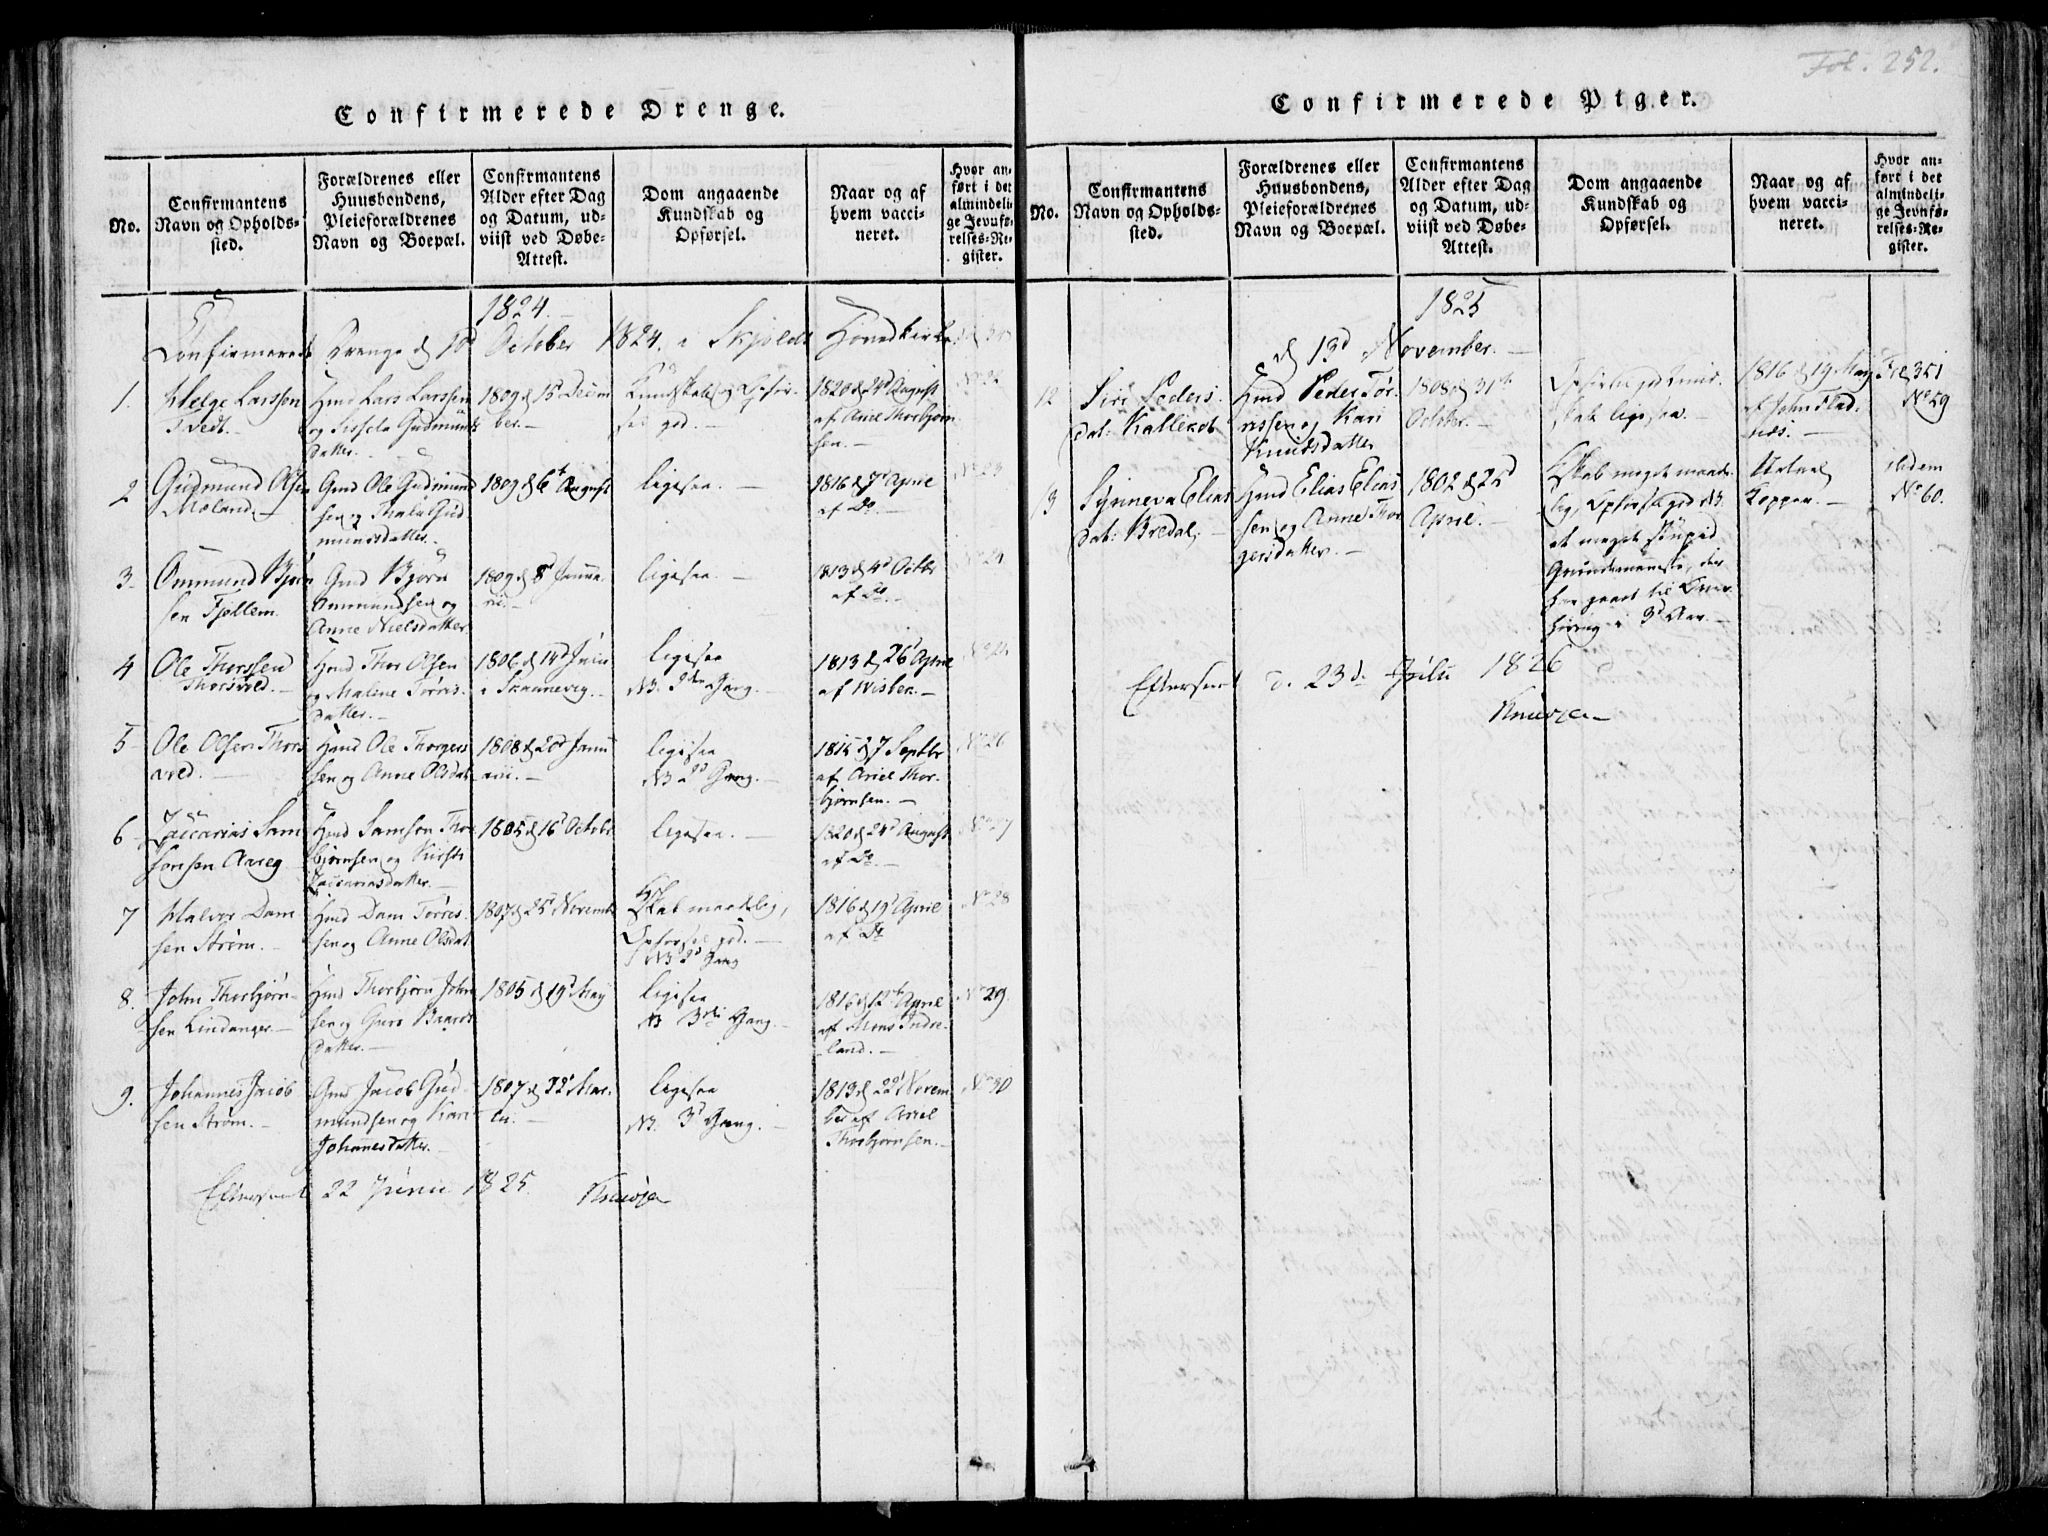 Fol. 252.
Confirmerede Drenge.
No.
Confirmantens
Navn og Opholds-
sted.
Forældrenes eller
Huusbondens,
Pleieforældrenes
Navn og Boepæl.
Confirmantens
Alder efter Dag
og Datum, ud-
viist ved Døbe-
Attest.
Dom angaaende
Kundskab og
Opførsel.
Naar og af
hvem vacci-
neret.
Hvor an-
ført i det
almindeli-
ge Jevnfø-
relses-Re-
gister.
1824.
Confirmerede Drenge d 10d October 1824 i Skjolds Hovedkirke
1.
Helge Larssen
Tvedt.
Gmd Lars Larssen
og Sissela Gudmunds
datter.
1809 d 15d Decem
ber.
Kundskab og Opfør-
sel god.
1820 d 24d August
af Ariel Thorbjørn
sen.
No 22
2
Gudmund Olsen
Moland.
Gmd Ole Gudmund
sen og Mala Gud
mundsdatter.
1809 d 6t August
ligesaa.
1816 d 7d April
af Do.
No 23
3.
Ommund Bjørn
sen Fjellem.
Gmd Bjørn
Ommundsen og
Anne Nielsdatter
1809 d 8d Janua-
rii.
ligesaa.
1813 d 4d Octbr
af Do.
No 24
4
Ole Thorssen
Thorsved.
Hmd Thor Olsen
og Malene Tørris-
datter.
1806 d 14d Juni
i Skaanevig.
ligesaa
NB. Gang.
1813 d 26d April
af
No 25
5
Ole Olsen Thors
ved.
Hmd Ole Thorgers
sen og Anne Olsdat
1808 d 20d Janu
arii.
ligesaa
NB 2d Gang.
1815 d 7 Septbr
af Ariel Thor-
bjørnsen.
No 26
6
Zaccarias Sam
sonsen Aareg
Hmd Samson Thor
bjørnsen og Kirsti
Zaccariasdatter.
1805 d 16d Octobr
ligesaa.
1820 d 24d August
af Do.
No 27
7
Halvor Dam
sen Strøm.
Hmd Dam Tørres-
sen og Anne Olsdat
1807 d 25d Novemb
Kskab maadelig,
Opførsel god.
NB 2d Gang
1816 d 19d April
af Do
No 28
8.
John Thorbjørn-
sen Lindanger
Hmd Thorbjørn John
sen og Guro Baards
datter.
1805 d 19d May
ligesaa
NB 3die Gang.
1816 d 12te April
af Mons Indre-
land.
No 29.
9.
Johannes Jacob
sen Strøm.
Gmd Jacob Gud
mundsen og Kari
Johannesdatter.
1807 d 22d Mar-
tii.
ligesaa
NB. 3d Gang.
1813 d 22d Novem
ber af Ariel
Thorbjørnsen.
No 30
Efterseet 22 Junii 1825.
Confirmerede Piger.
No.
Confirmantens
Navn og Opholds-
sted.
Forældrenes eller
Huusbondens,
Pleieforældrenes
Navn og Boepæl.
Confirmantens
Alder efter Dag
og Datum, ud-
viist ved Døbe-
Attest.
Dom angaaende
Kundskab og
Opførsel.
Naar og af
hvem vacci-
neret.
Hvor an-
ført i det
almindeli-
ge Jevnfø-
relses-Re-
gister.
1825
d 13d November.
12
Siri Peders-
dat: Kallekot
Hmd Peder Tør-
rissen og Kari
Knudsdatter
1808 d 31te
October.
Opførsel god Kund-
skab ligesaa.
1816 d 19 May
af John
Fol 351
No 59
13
Synneva Elias
dat: Bredal.
Hmd Elias Elias
sen og Anne Thor
gersdatter.
1802 d 25d
April.
Kskab meget maade-
lig, Opførsel god NB.
et meget stupid
der
har gaaet til
i 3d Aar.
Naturl
Kopper.
ibidem
No 60.
Efterseet d. 23d Julii 1826